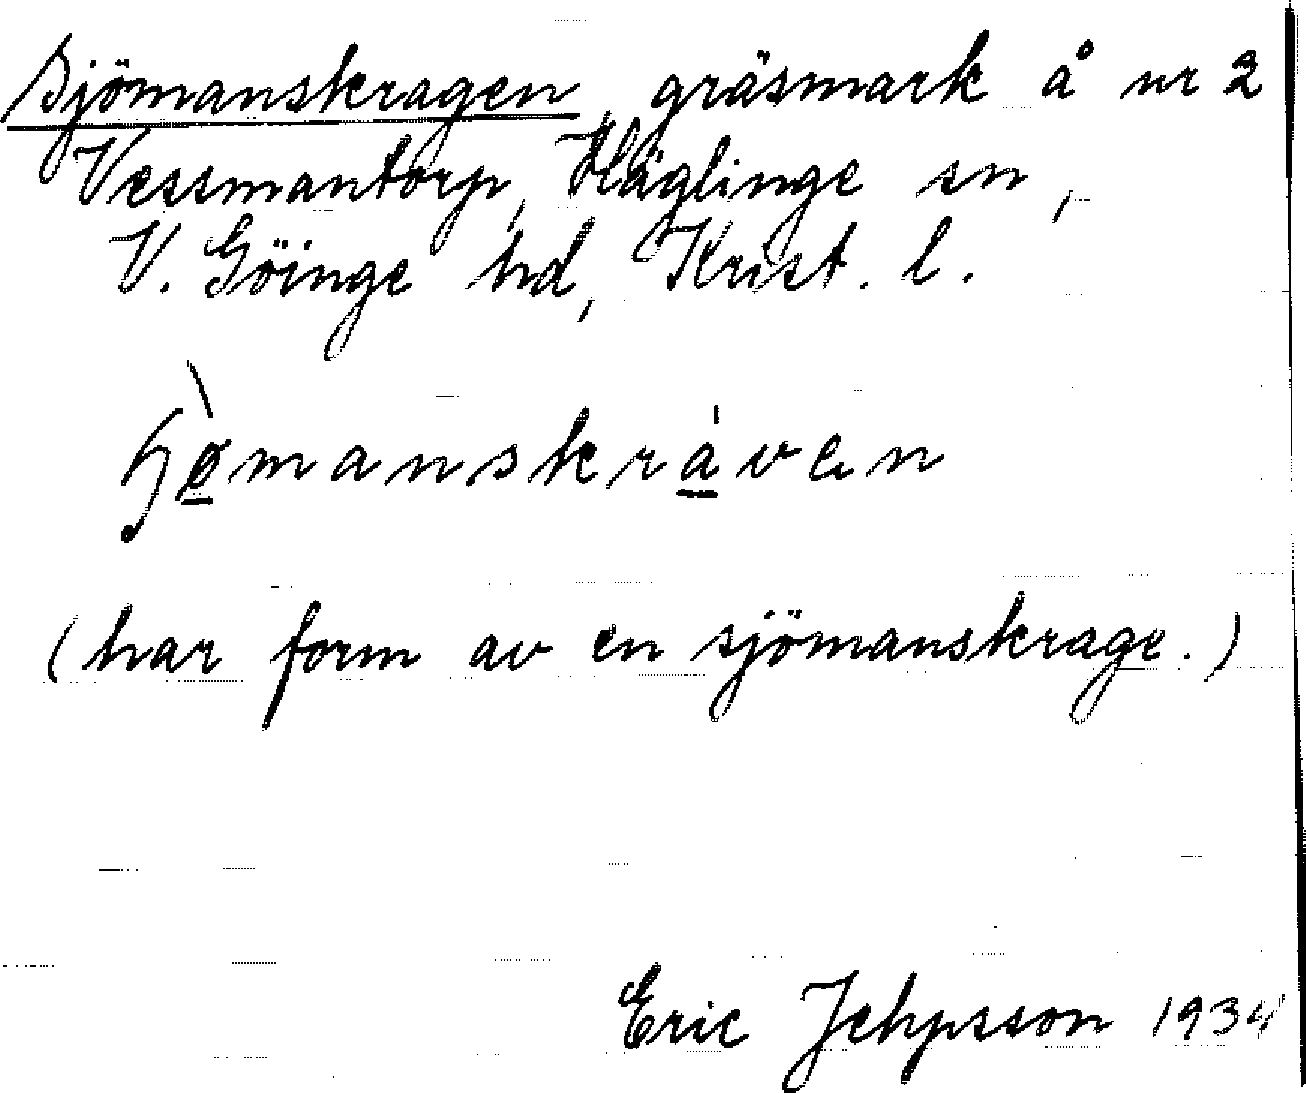 Sjömanskragen, gräsmark å nr 2
Vessmantorp, Häglinge sn,
V. Göinge hd, Krist. l.
ɧø̱̀manskrà̱ven
(har form av en sjömanskrage.)
Eric Jehpsson 1934